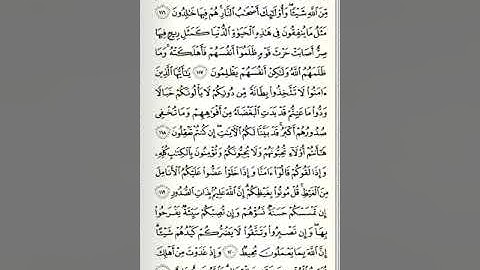 مِّنَ ٱللَّهِ شَيْـًٔا ۖ وَأُو۟لَـٰٓئِكَ أَصْحَـٰبُ ٱلنَّارِ ۚ هُمْ فِيهَا خَـٰلِدُونَ ١١٦
مَثَلُ مَا يُنفِقُونَ فِى هَـٰذِهِ ٱلْحَيَوٰةِ ٱلدُّنْيَا كَمَثَلِ رِيحٍ فِيهَا
صِرٌّ أَصَابَتْ حَرْثَ قَوْمٍ ظَلَمُوٓا۟ أَنفُسَهُمْ فَأَهْلَكَتْهُ ۚ وَمَا
ظَلَمَهُمُ ٱللَّهُ وَلَـٰكِنْ أَنفُسَهُمْ يَظْلِمُونَ ١١٧ يَـٰٓأَيُّهَا ٱلَّذِينَ
ءَامَنُوا۟ لَا تَتَّخِذُوا۟ بِطَانَةً مِّن دُونِكُمْ لَا يَأْلُونَكُمْ خَبَالًا
وَدُّوا۟ مَا عَنِتُّمْ قَدْ بَدَتِ ٱلْبَغْضَآءُ مِنْ أَفْوَٰهِهِمْ وَمَا تُخْفِى
صُدُورُهُمْ أَكْبَرُ ۚ قَدْ بَيَّنَّا لَكُمُ ٱلْـَٔايَـٰتِ ۖ إِن كُنتُمْ تَعْقِلُونَ ١١٨
هَـٰٓأَنتُمْ أُو۟لَآءِ تُحِبُّونَهُمْ وَلَا يُحِبُّونَكُمْ وَتُؤْمِنُونَ بِٱلْكِتَـٰبِ كُلِّهِۦ
وَإِذَا لَقُوكُمْ قَالُوٓا۟ ءَامَنَّا وَإِذَا خَلَوْا۟ عَضُّوا۟ عَلَيْكُمُ ٱلْأَنَامِلَ
مِنَ ٱلْغَيْظِ ۚ قُلْ مُوتُوا۟ بِغَيْظِكُمْ ۗ إِنَّ ٱللَّهَ عَلِيمٌۢ بِذَاتِ ٱلصُّدُورِ ١١٩
إِن تَمْسَسْكُمْ حَسَنَةٌ تَسُؤْهُمْ وَإِن تُصِبْكُمْ سَيِّئَةٌ يَفْرَحُوا۟
بِهَا ۖ وَإِن تَصْبِرُوا۟ وَتَتَّقُوا۟ لَا يَضُرُّكُمْ كَيْدُهُمْ شَيْـًٔا ۗ
إِنَّ ٱللَّهَ بِمَا يَعْمَلُونَ مُحِيطٌ ١٢٠ وَإِذْ غَدَوْتَ مِنْ أَهْلِكَ